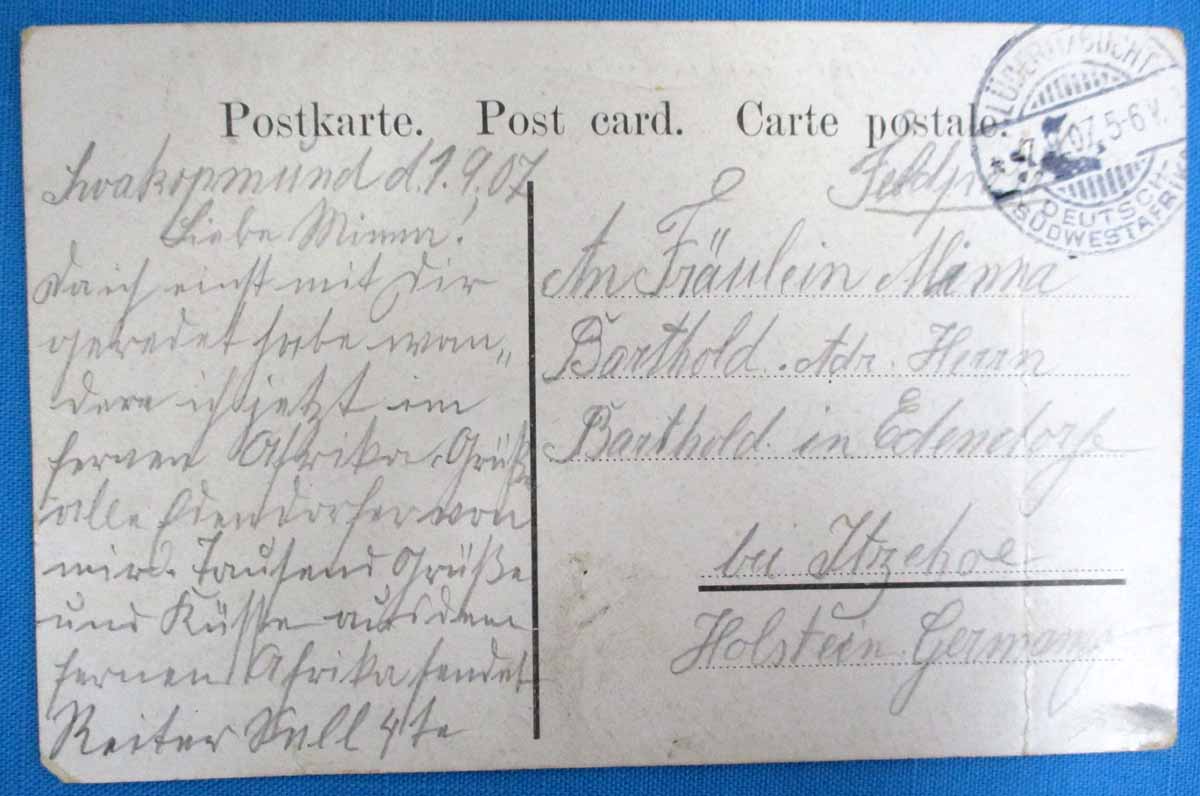 Postkarte. Post card. Carte postale.
LÜDERITZBUCHT
07. 5-6 V.
DEUTSCH-
SÜDWESTAFRIKA
Swakopmund d. 1.9.07
Liebe Minna!
Da ich einst mit Dir
geredet habe wan„
dere ich jetzt im
fernen Afrika. Grüße
alle Edendorfer von
mir. Tausend Grüße
und Küsse aus dem
fernen Afrika sendet
Reiter
An Fräulein Minna
Barthold. Adr. Herrn
Barthold in Edendorf
bei Itzehoe
Holstein. Germany